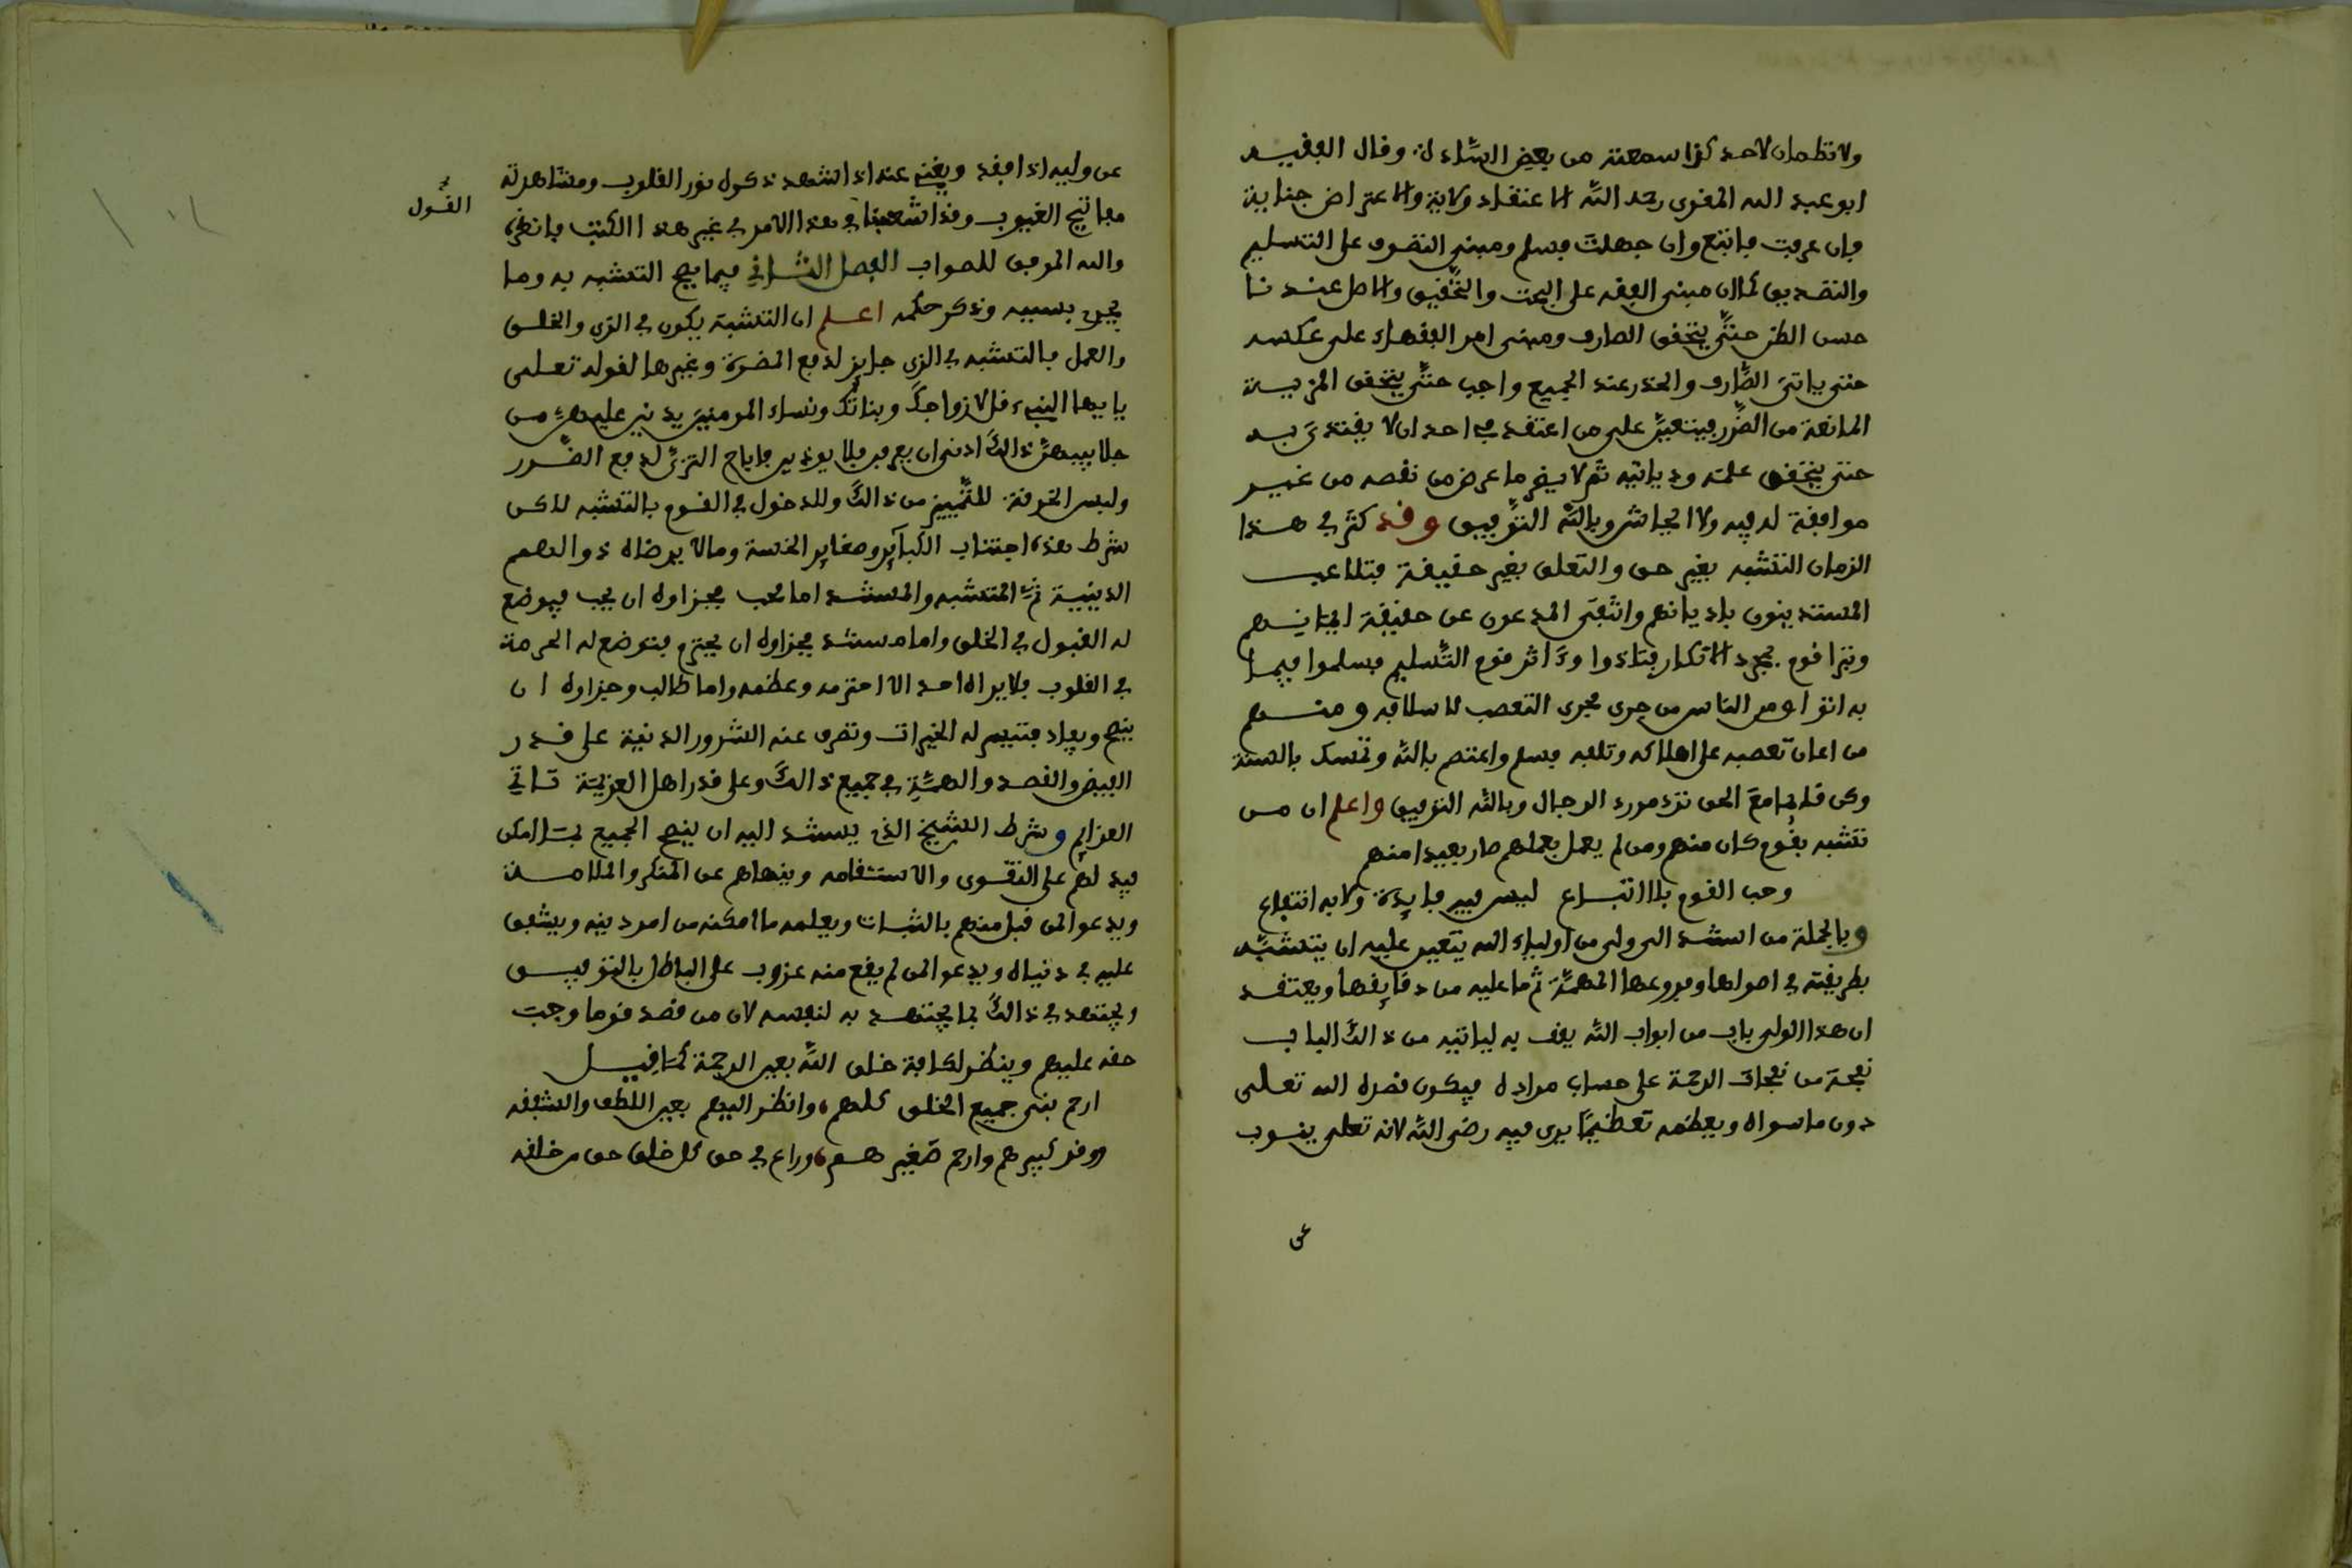 ولا تظمان لاحد كذا سمعته من بعض السادة وقال الفقيه
ابو عبد الله المقرى رحمه الله الاعتقاد ولاية والاعتراض جناية
فان عرفت فاتبع وان جهلت فسلم ومبنى التصوف على التسليم
والتصديق كما ان مبنى الفقه على البحث والتحقيق والاصل عندنا
حسن الظن حتى يتحقق الصارف ومبنى امر الفقهاء على عكسه
حتى ياتى الصارف والحذر عند الجميع واجب حتى يتحقق المزية
المانعة من الضرر فيتعين على من اعتقد في احد ان لا يقتدى به
حتى يتحقق علمه وديانته ثم لا يضر ما عرض من نقصه من غير
موافقة له فيه ولا وبالله التوفيق وقد كثر في هذا
الزمان التشبه بغير حق والتعلق بغير حقيقة فتلاعب
المستندينون باديانهم المدعون عن حقيقة ايمانهم
قوم بمجرد الانكار فتاذوا وداثر قوم التسليم فسلموا فيما
به ومن الناس من جرى مجرى التعصب لاسلافه ومنهم
من اعان تعصبه على اهلاكه وتلفه فسلم واعتصم بالله وتمسك بالسنة
وكن قائما مع الحق ترد مورد الرجال وبالله التوفيق واعلم ان من
تشبه بقوم كان منهم ومن لم يعمل بعملهم صار بعيدا منهم
وحب القوم بلا اتباع ليس فيه فايدة ولا به انتفاع
وبالجملة من استند الى ولى من اولياء الله يتعين عليه ان يتشبه
بطريقته في اصولها وفروعها المهمة ثم ما عليه من دقايقها ويعتقد
ان هذا الولى باب من ابواب الله يقف به لياتيه من ذالك الباب
نفحة من نفحات الرحمة على حساب مراده فيكون قصده الله تعلى
دون ما سواه ويعظمه تعظيما يرى فيه رضى الله لانه تعلى ينوب
عن
عن وليه اذا فقد ويغنى عنه اذا شهد ذكول نور القلوب ومشاهرته
مفاتيح الغيوب وقد اشبعنا في هذا الامر في غير هذا الكتب فانظره
والله الموفق للصواب الفصل الثاني فيما يقع التشبه به وما
يجرى بسببه وذكر حكمه اعلم ان التشبه يكون في الزى والخلق
والعمل فالتشبه في الزى جايز لدفع المضرة وغيرها لقوله تعلى
يايها النبىء قل لازواجك وبناتك ونساء المومنين يدنين عليهن من
جلابيبهن ذالك ادنى ان يعرفن فلا يوذين فاباح التزى لدفع الضرر
ولبس الخرقة للتمييز من ذالك وللدخول في القوم بالتشبه لاكن
شرط هذه اجتناب الكبآير وصغاير الخسة ومالا يرضاه ذوالهمم
الدينية ثم المتشبه والمستند اما محب فجزاوه ان يحب فيوضع
له القبول في الخلق واما مستند فجزاوه ان يحترم فتوضع له الحرمة
في القلوب فلا يراه احد الا احترمه وعظمه واما طالب وجزاوه ان
ينصح ويفاد فتتيسر له الخيرات وتصرف عنه الشرور الدنية على قدر
الفيض والقصد والهمة في جميع ذالك وعلى قدر اهل العزيمة تاتي
العزايم وشرط الشيخ الذى يستند اليه ان ينصح الجميع بما امكن
فيدلهم على التقوى والاستقامه وينهاهم عن المنكر والملامسة
ويدعوا لمن قبل منهم بالثبات ويعلمه ما امكنه من امر دينه ويشفق
عليه في دنياه ويدعوا لمن لم يقع منه عزوب على الباطل بالتوفيق
ويجتهد في ذالك بما يجتهد به لنفسه لان من قصد قوما وجبت
حقه عليهم وينظر لكافة خلق الله بعين الرحمة كما قيل
ارحم بنى جميع الخلق كلهم ، وانظر اليهم بعين اللطف والشفقه
ووقر كبيرهم وارحم صغيرهم ، وراع في حق كل خلق حق من خلقه
القول